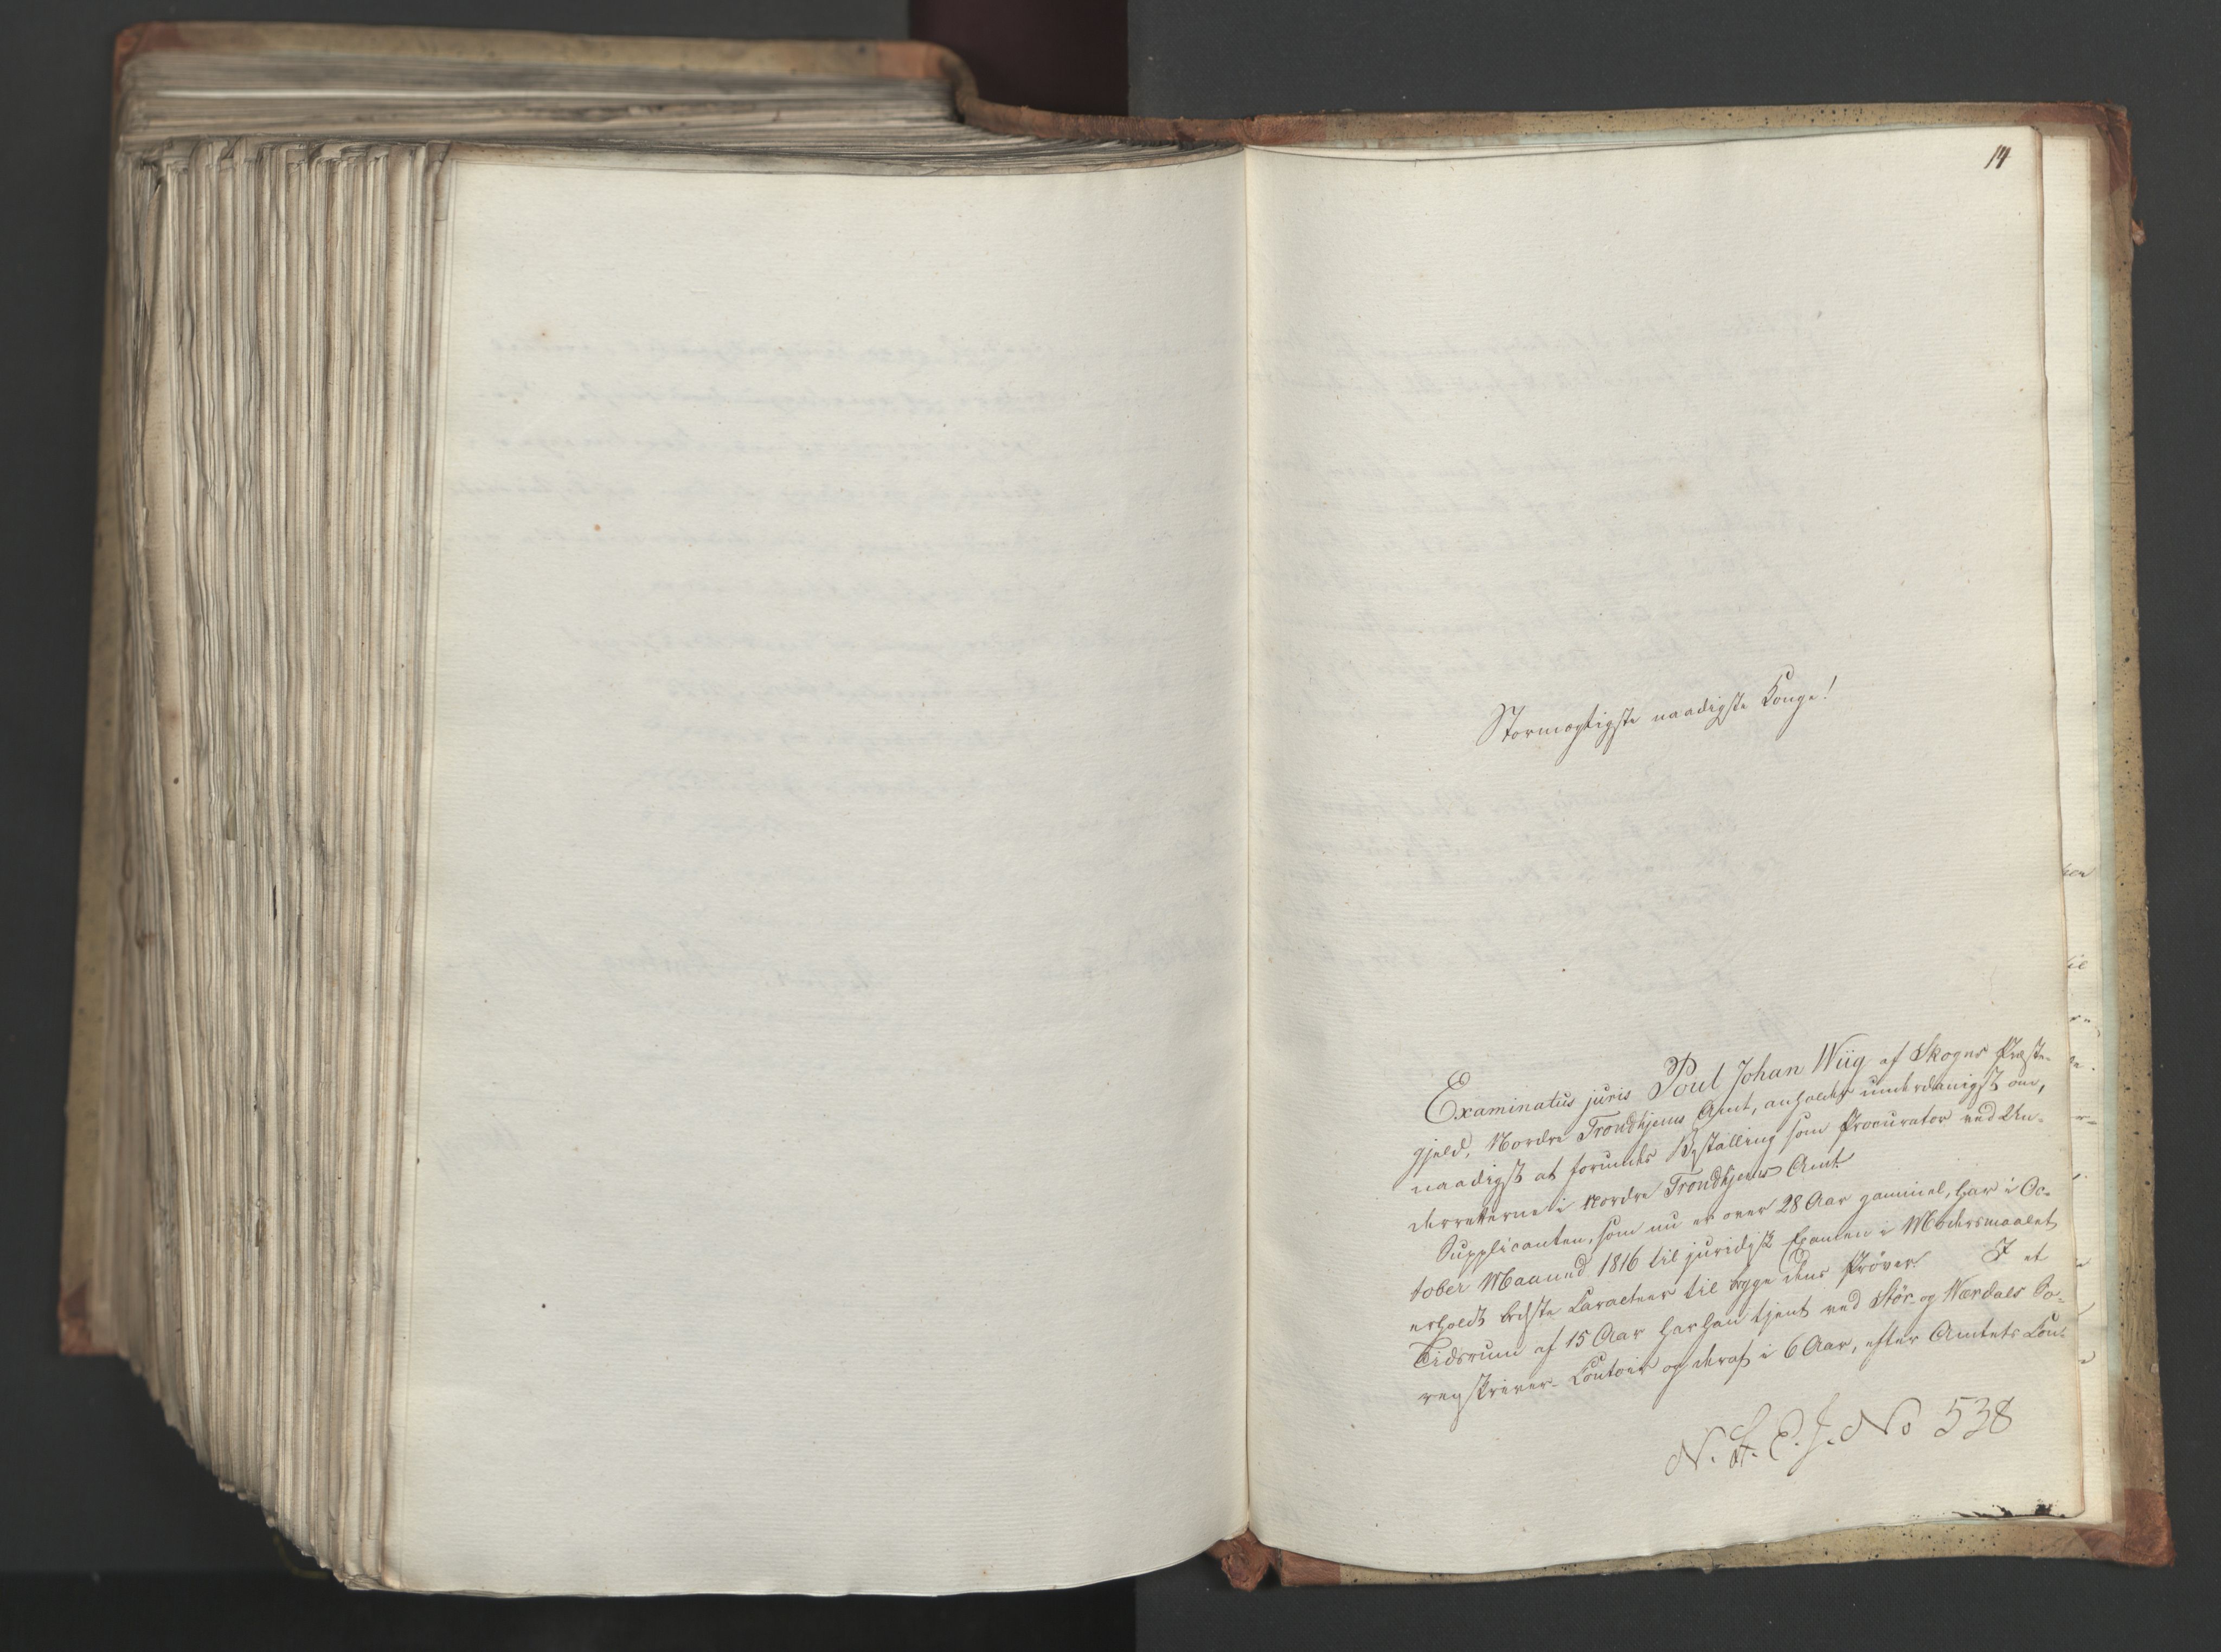 14
Stormægtigste naadigste Konge!
Examinatus juris Poul Johan Wiig af Skogns Præste-
gjeld, Nordre Trondhjems Amt, anholder underdanigst om,
naadigst at forundes Bestalling som Procurator ved Un-
derretterne i Nordre Trondhjems Amt.
Supplicanten, som nu er over 28 Aar gammel, har i Oc-
tober Maaned 1816 til juridisk Examen i Modersmaalet
erholdt bedste Caracteer til begge dens Prøver. I et
Tidsrum af 15 Aar har han tjent ved Stør- og Værdals So-
renskriver-Contoir og deraf i 6 Aar, efter Amtets Con-
N. H. E. J. No 538